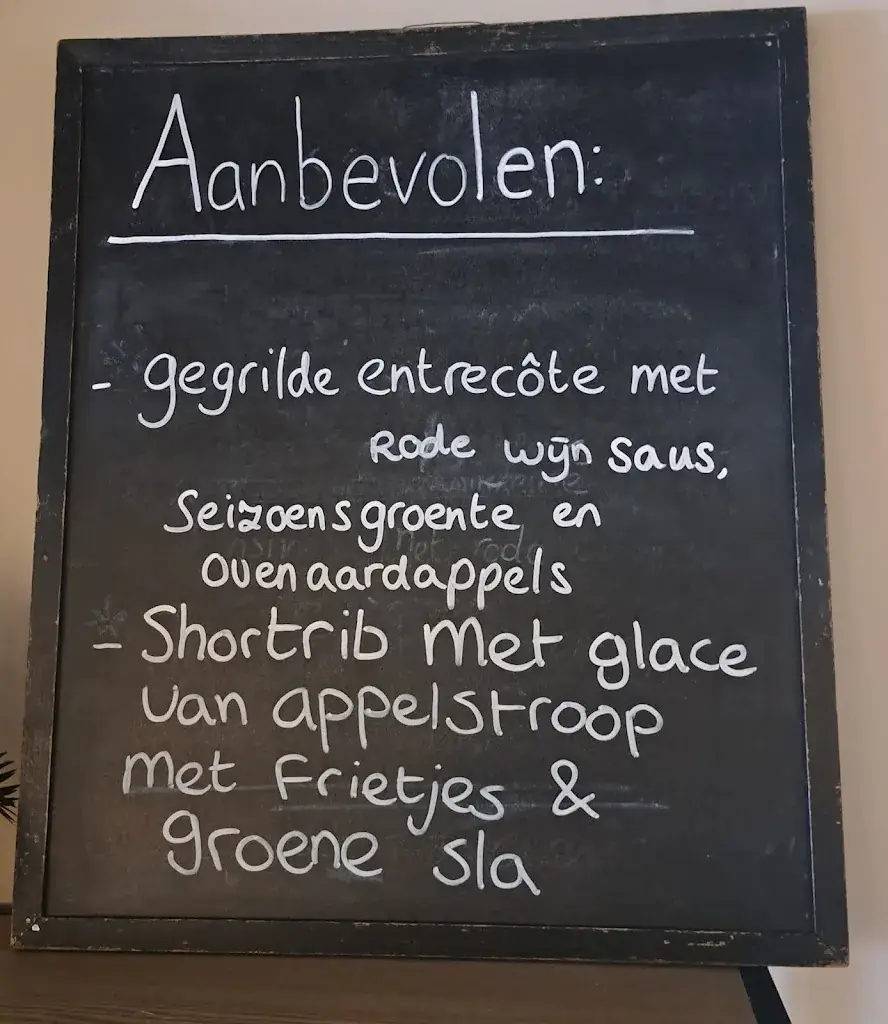 Aanbevolen:
- gegrilde entrecôte met
Rode wijn saus,
Seizoensgroente en
ovenaardappels
- Shortrib met glace
van appelstroop
met frietjes &
groene sla